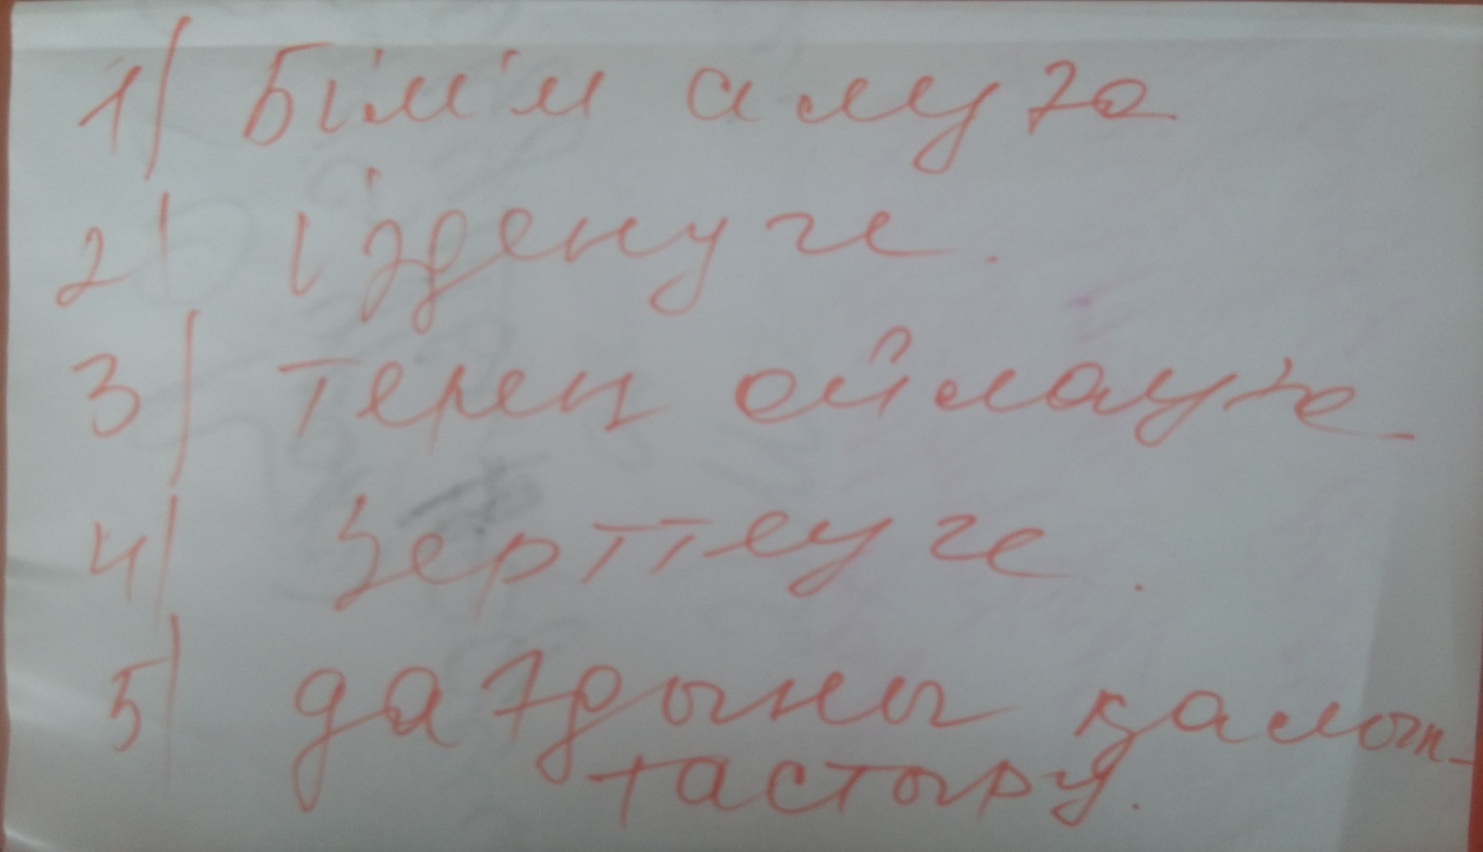 1) Білім алуға
2) Ізденуге.
3) терең ойлауға
4) Зерттеуге.
5) дағдыны қалып-
тастыру.